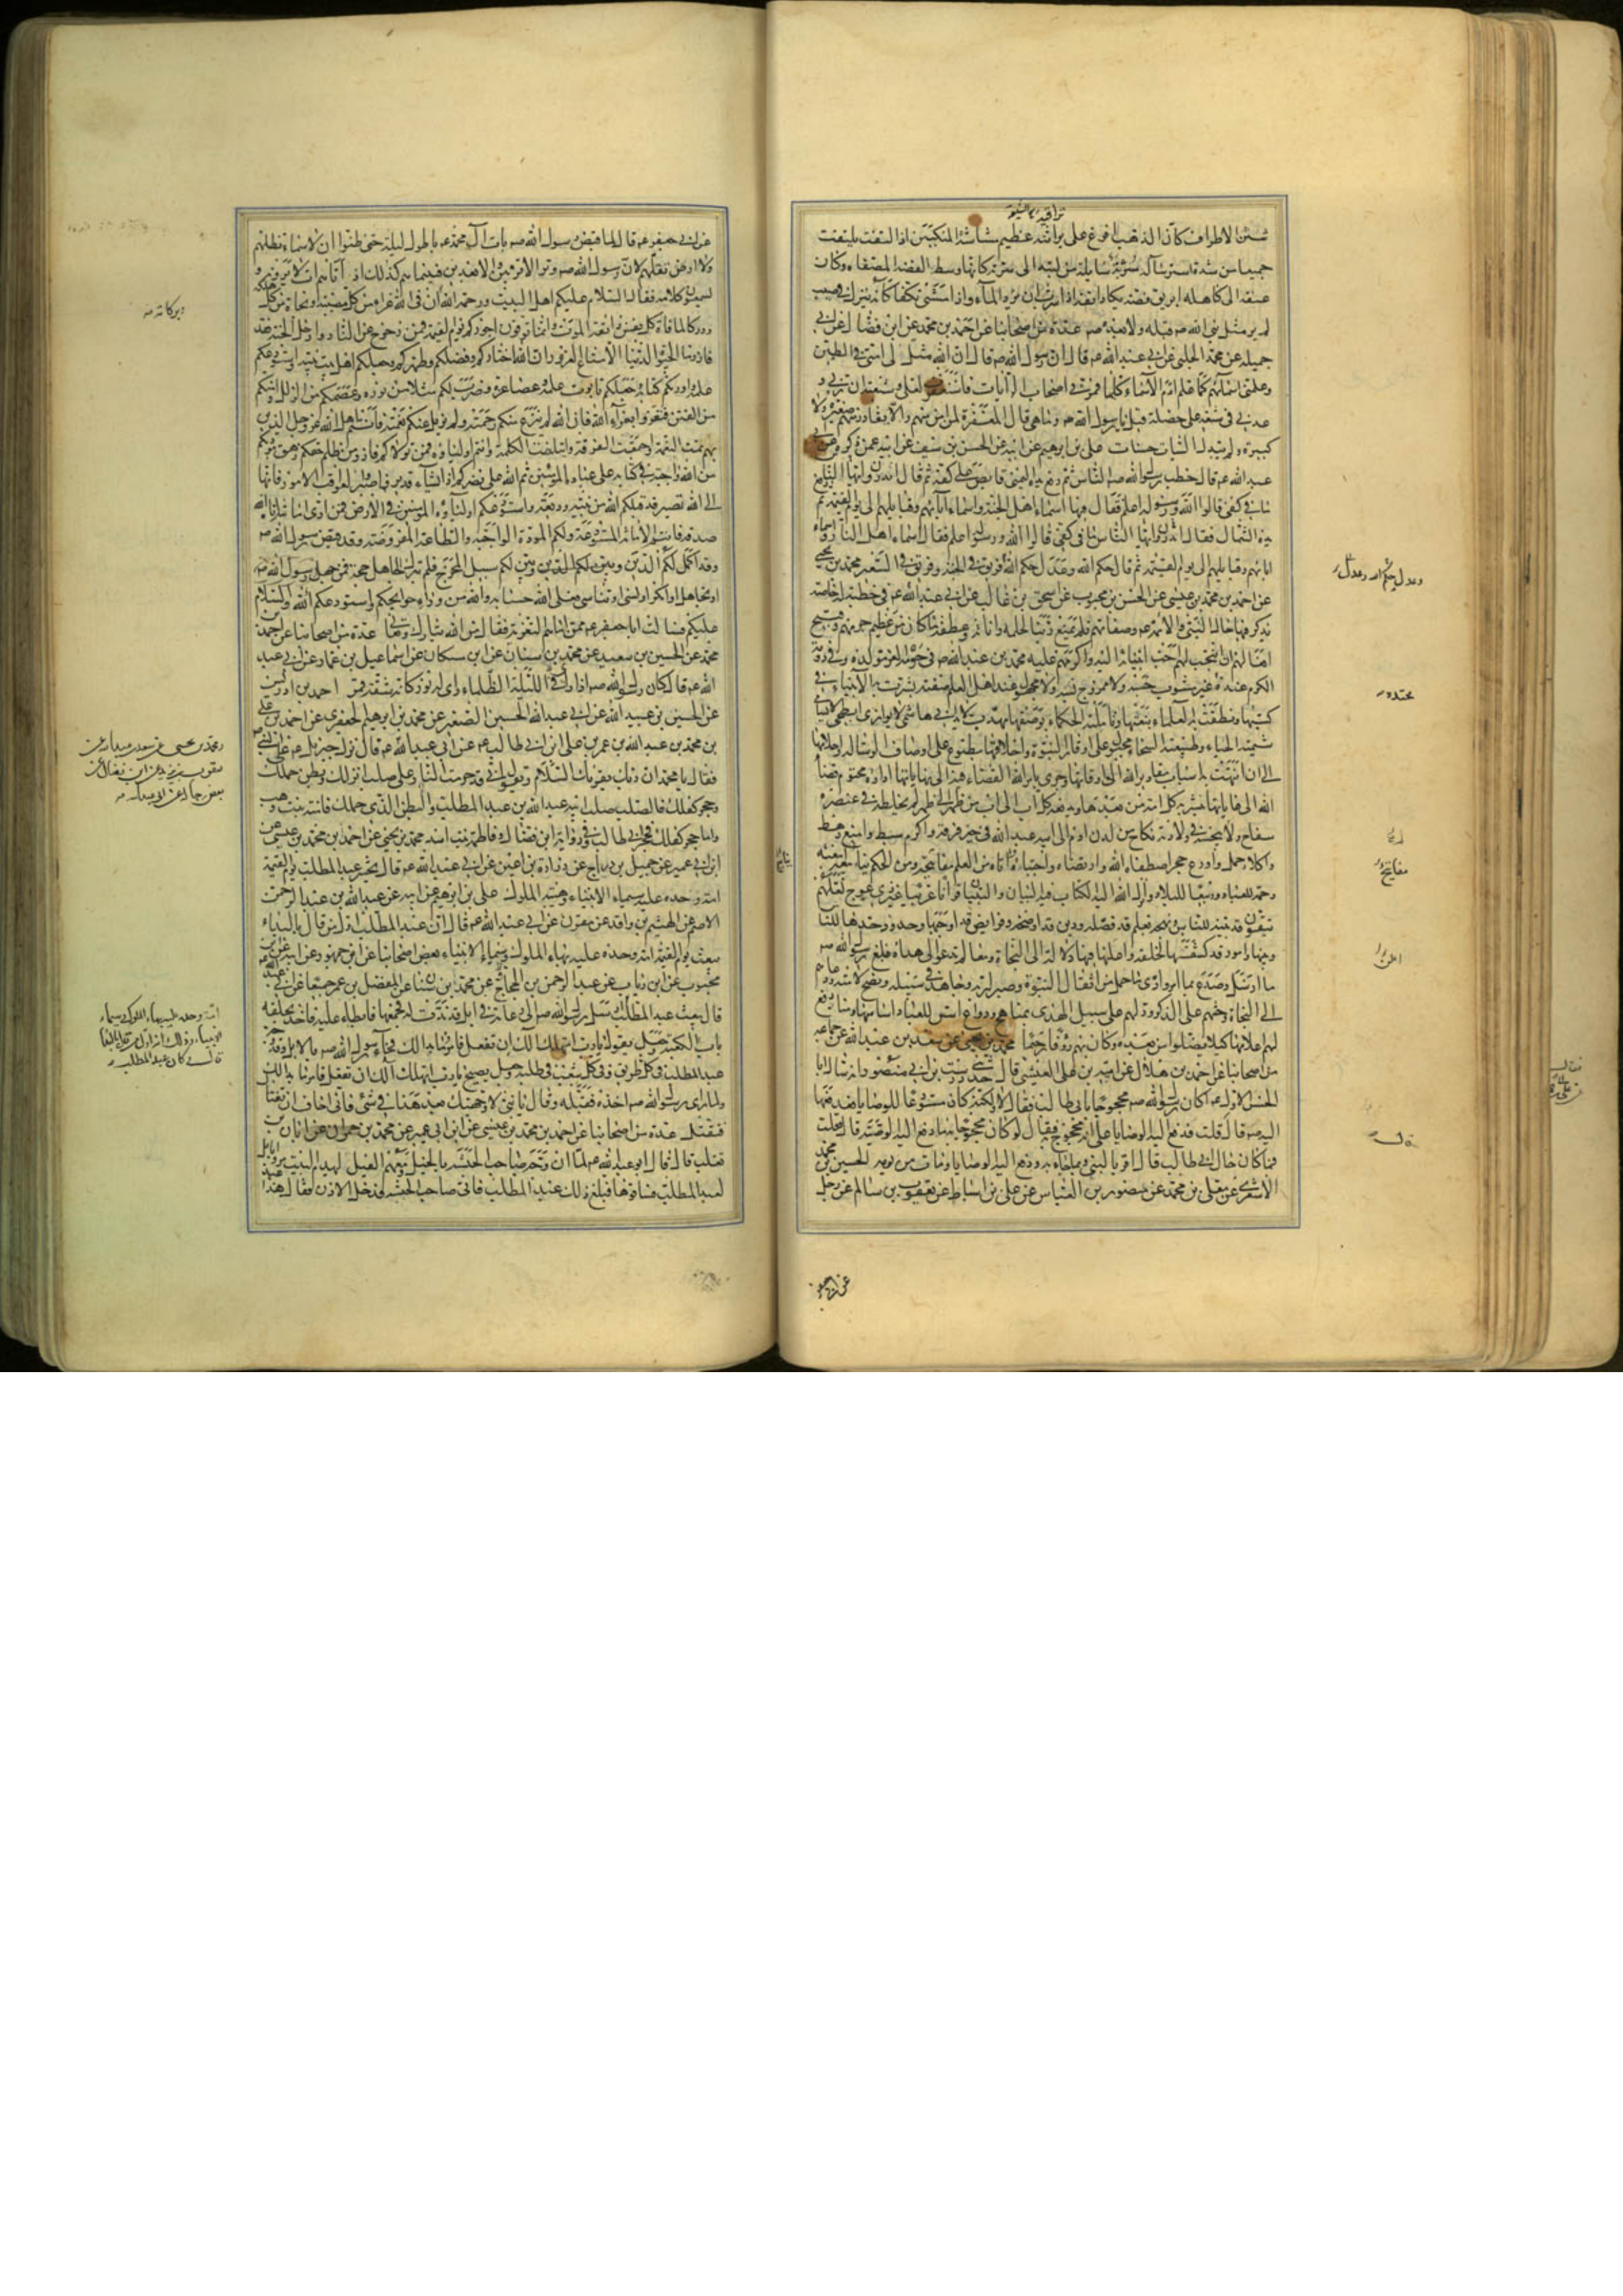 تراقيه
شثن الاطراف كأن الذهب افرغ على براثنه عظيم مشاشة المنكبين اذا التفت يلتفت
جميعا من شدة استرساله سربته سايلة من لبته الى سرته كانها وسط الفضة المصفاه وكان
عنقه الى كاهله ابريق فضة يكاد انفه اذا شرب ان يرد الماء واذا مشى تكفأ كانه ينزل في صبب
لم ير مثل نبي الله صم قبله ولا بعده صم عدة من اصحابنا عن احمد بن محمد عن ابن فضال عن ابي
جميلة عن محمد الحلبي عن ابي عبد الله عم قال ان رسول الله صم قال ان الله مثل لي امتي في الطين
وعلمني اسماءهم كما علم ادم الاسماء كلها فمر بي اصحاب الرايات فاستغفرت لعلي وشيعته ان ربي و
عدني في شيعة علي خصلة قيل يا رسول الله صم وما هي قال المغفرة لمن امن منهم والا يغادر منهم صغيرة ولا
كبيرة ولهم تبدل السيات حسنات علي بن ابرهيم عن ابيه عن الحسن بن سيف عن ابيه عمن ذكره عن ابي
عبد الله عم قال خطب رسول الله صم الناس ثم رفع يده اليمنى قابضا على كفه ثم قال اتدرون ايها الناس
ما في كفي قالوا الله ورسوله اعلم فقال فيها اسماء اهل الجنة واسماء آبائهم وقبايلهم الى يوم القيمة ثم
يده الشمال فقال اتدرون ايها الناس ما في كفي قالوا الله ورسوله اعلم فقال اسماء اهل النار واسماء
ابائهم وقبايلهم الى يوم القيمة ثم قال حكم الله وعدل حكم الله فريق في الجنة وفريق في السعير محمد بن يحيى
عن احمد بن محمد بن عيسى عن الحسن بن محبوب عن اسحق بن غالب عن ابي عبد الله عم في خطبة له خاصة
يذكر فيها حال النبي والائمة عم وصفاتهم فلم يمنع ربنا لحلمه واناته وعطفه ما كان من عظيم جرمهم وقبيح
افعالهم ان انتجب لهم احب انبيائه اليه واكرمهم عليه محمد بن عبد الله صم في حومة العز مولده وفي دومة
الكرم محتده غير مشوب حسبه ولا ممزوج نسبه ولا مجهول عند اهل العلم صفته بشرت به الانبياء في
كتبها ونطقت به العلماء بنعتها وتاملته الحكماء بوصفها مهذب لا يدانى هاشمي لا يوازى ابطحي لا يسامى
شيمته الحياء وطبيعته السخاء مجبول على اوقار النبوة واخلاقها مطبوع على اوصاف الرسالة واحلامها
الى ان انتهت به اسباب مقادير الله الى اوقاتها وجرى بامر الله القضاء فيه الى نهاياتها اداه محتوم قضاء
الله الى غاياتها تبشر به كل امة من بعدها ويدفعه كل اب الى اب من ظهر الى ظهر لم يخلطه في عنصره
سفاح ولم ينجسه في ولادته نكاح من لدن ادم الى ابيه عبد الله في خير فرقة واكرم سبط وامنع رهط
واكلاء حمل واودع حجر اصطفاه الله وارتضاه واجتباه واتاه من العلم مفاتيحه ومن الحكم ينابيعه ابتعثه
رحمة للعباد وربيعا للبلاد وانزل الله اليه الكتاب فيه البيان والتبيان قرآنا عربيا غير ذي عوج لعلهم
يتقون قد بينه للناس ونهجه بعلم قد فصله ودين قد اوضحه وفرايض قد اوجبها وحدود حدها للناس
وبينها وامور قد كشفها لخلقه واعلنها فيها دلالة الى النجاة ومعالم تدعو الى هداه فبلغ رسول الله صم
ما ارسل به وصدع بما امر وادى ما حمل من اثقال النبوة وصبر لربه وجاهد في سبيله ونصح لامته ودعاهم
الى النجاة وحثهم على الذكر ودلهم على سبيل الهدى بمناهج ودواع اسس للعباد اساسها ومنار رفع
لهم اعلامها كيلا يضلوا من بعده وكان بهم رؤفا رحيما محمد بن يحيى عن سعد بن عبد الله عن جماعة
من اصحابنا عن احمد بن هلال عن امية بن علي القيسي قال حدثني درست بن ابي منصور انه سال ابا
الحسن الاول عم اكان رسول الله صم محجوجا بابي طالب فقال لا ولكنه كان مستودعا للوصايا فدفعها
اليه صم قال قلت فدفع اليه الوصايا على انه محجوج به فقال لو كان محجوجا به ما دفع اليه الوصية قال قلت
فما كان حال ابي طالب قال اقر بالنبي وبما جاء به ودفع اليه الوصايا ومات من يومه الحسين بن محمد
الاشعري عن معلى بن محمد عن منصور بن العباس عن علي بن اسباط عن يعقوب بن سالم عن رجل
عن ابي جعفر
وعدل حكم الله وعدل
محتده
مفاتيحه
اعلن
عن ابي جعفر عم قال لما قبض رسول الله صم بات آل محمد عم باطول ليلة حتى ظنوا ان لا سماء تظلهم
ولا ارض تقلهم لان رسول الله صم وتر الاقربين والابعدين في الله فبينما هم كذلك اذ اتاهم ات لا يرونه و
يسمعون كلامه فقال السلام عليكم اهل البيت ورحمة الله ان في الله عزاء من كل مصيبة ونجاة من كل هلكة
ودركا لما فات كل نفس ذائقة الموت وانما توفون اجوركم يوم القيمة فمن زحزح عن النار وادخل الجنة فقد
فاز وما الحيوة الدنيا الا متاع الغرور ان الله اختاركم وفضلكم وطهركم وجعلكم اهل بيت نبيه واستودعكم
علمه واورثكم كتابه وجعلكم تابوت علمه وعصا عزه وضرب لكم مثلا من نوره وعصمكم من الزلل وامنكم
من الفتن فتعزوا بعزاء الله فان الله لم ينزع منكم رحمته ولن يزيل عنكم نعمته فانتم اهل الله عز وجل الذين
بهم تمت النعمة واجتمعت الفرقة وائتلفت الكلمة وانتم اولياؤه فمن تولاكم فاز ومن ظلم حقكم زهق مودتكم
من الله واجبة في كتابه على عباده المؤمنين ثم الله على نصركم اذا يشاء قدير فاصبروا لعواقب الامور فانها
الى الله تصير قد قبلكم الله من نبيه وديعة واستودعكم اولياءه المؤمنين في الارض فمن ادى امانته اتاه الله
صدقه فانتم الامانة المستودعة ولكم المودة الواجبة والطاعة المفروضة وقد قبض رسول الله صم
وقد اكمل لكم الدين وبين لكم سبيل المخرج فلم يترك لجاهل حجة فمن جهل
او تجاهل او انكر او نسي او تناسى فعلى الله حسابه والله من وراء حوايجكم واستودعكم الله والسلام
عليكم فسالت ابا جعفر عم ممن اتاهم التعزية فقال من الله تبارك وتعالى عدة من اصحابنا عن احمد بن
محمد عن الحسين بن سعيد عن محمد بن سنان عن ابن مسكان عن اسماعيل بن عمار عن ابي عبد
الله عم قال كان رسول الله صم اذا رئي في الليلة الظلماء راى له نور كانه شقة قمر احمد بن ادريس
عن الحسين بن عبيد الله عن ابي عبد الله الحسين الصغير عن محمد بن ابرهيم الجعفري عن احمد بن علي
بن محمد بن عبد الله بن عمر بن علي ابن ابي طالب عم عن ابي عبد الله عم قال نزل جبريل عم على النبي صم
فقال يا محمد ان ربك يقرئك السلام ويقول اني قد حرمت النار على صلب انزلك وبطن حملك
وحجر كفلك فالصلب صلب ابيه عبد الله بن عبد المطلب والبطن الذي حملك فآمنة بنت وهب
واما حجر كفلك فحجر ابي طالب وفي رواية ابن فضال وفاطمة بنت اسد محمد بن يحيى عن احمد بن محمد بن عيسى عن
ابن ابي عمير عن جميل بن دراج عن زرارة بن اعين عن ابي عبد الله عم قال يحشر عبد المطلب يوم القيمة
امة وحده عليه سيماء الانبياء وهيبة الملوك علي بن ابرهيم عن ابيه عن عبد الله بن عبد الرحمن
الاصم عن الهيثم بن واقد عن مقرن عن ابي عبد الله عم قال ان عبد المطلب اول من قال بالبداء
يبعث يوم القيمة امة وحده عليه بهاء الملوك وسيماء الانبياء بعض اصحابنا عن ابن جمهور عن ابيه عن ابن
محبوب عن ابن رياب عن عبد الرحمن بن الحجاج عن محمد بن سنان عن المفضل بن عمر جميعا عن ابي عبد الله
قال يبعث عبد المطلب ارسل رسول الله صم الى رعاته في ابل قد ندت له فجمعها فابطاء عليه فاخذ بحلقة
باب الكعبة وجعل يقول يا رب اتهلك آلك ان تفعل فامر ما بدا لك فجاء رسول الله صم بالابل وقد وجه
عبد المطلب في كل طريق وفي كل شعب في طلبه وجعل يصيح يا رب اتهلك آلك ان تفعل فامر ما بدا لك
ولما راى رسول الله صم اخذه فقبله وقال يا بني لا وجهتك بعد هذا في شئ فاني اخاف ان تغتال
فتقتل عدة من اصحابنا عن احمد بن محمد بن عيسى عن ابن ابي عمير عن محمد بن حمران عن ابان بن
تغلب قال قال ابو عبد الله عم لما ان وجه صاحب الحبشة بالخيل ومعهم الفيل ليهدم البيت مروا بابل
لعبد المطلب فساقوها فبلغ ذلك عبد المطلب فاتى صاحب الحبشة فدخل الاذن فقال هذا
وبركاته صم
ومحمد بن يحيى عن سعد بن عبد الله عن
يعقوب بن يزيد عن ابن فضال عن
بعض رجاله عن ابي عبد الله عم
امة وحده عليه بهاء الملوك وسيماء
الانبياء وذلك انه اول من قال بالبداء
قال وكان عبد المطلب